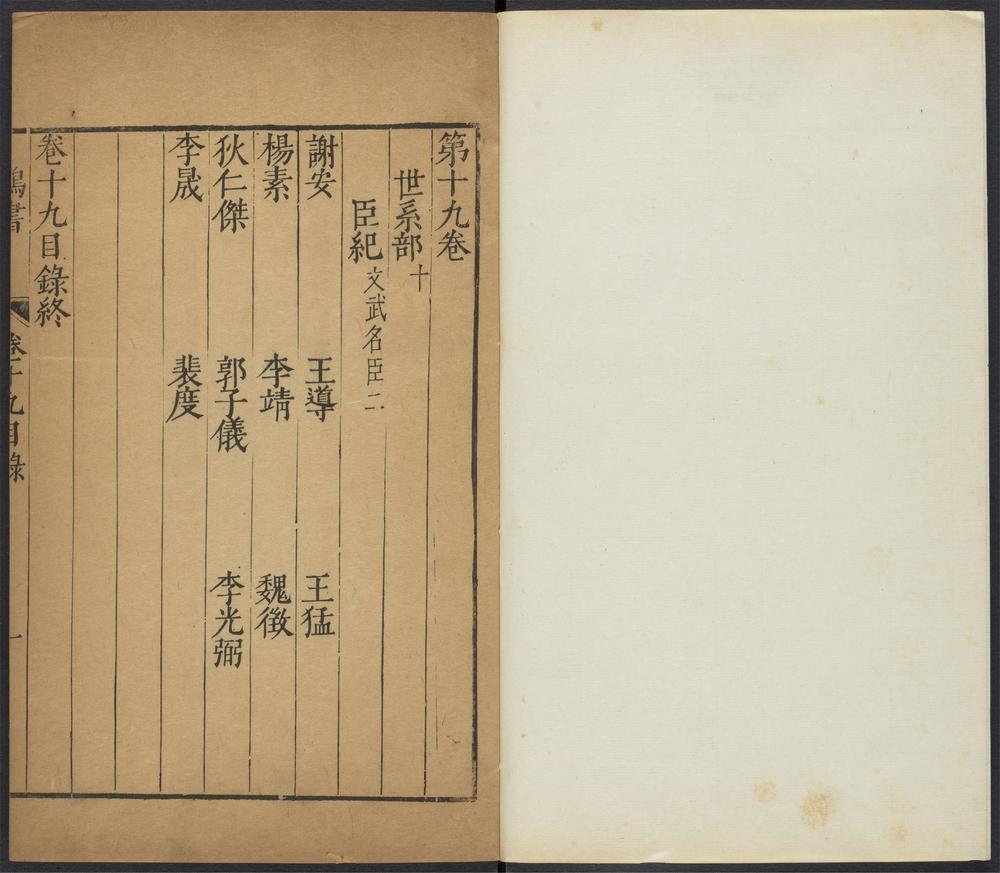 第十九卷
世系部十
臣紀文武名臣二
謝安 王導 王猛
楊素 李靖 魏徵
狄仁傑 郭子儀 李光弼
李晟 裴度
卷十九目錄終
鴻書 卷十九目錄 一